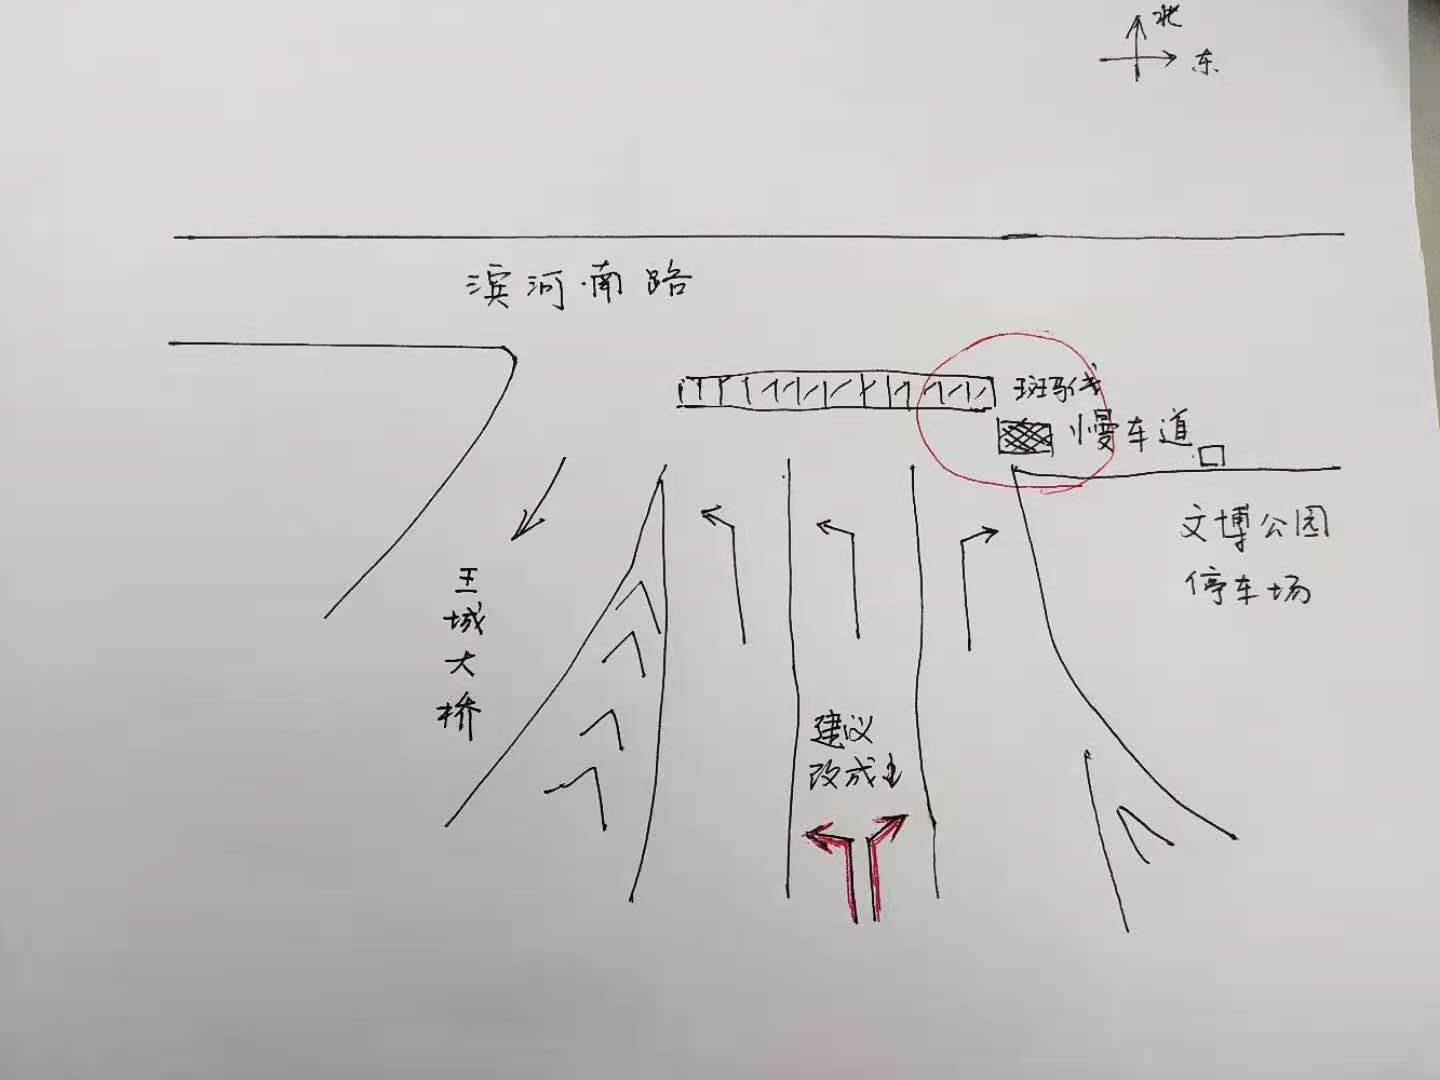 北
东
滨河南路
斑马线
慢车道
文博公园
停车场
王
城
大
桥
建议
改成